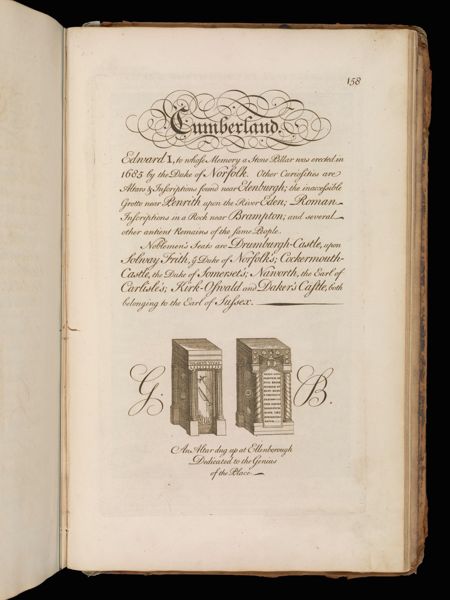 158
Cumberland.
Edward I, to whose Memory a Stone Pillar was erected in
1685 by the Duke of Norfolk. Other Curiosities are
Altars & Inscriptions found near Elenburgh; the inaccessible
Grotto near Penrith upon the River Eden; Roman
Inscriptions in a Rock near Brampton; and several
other antient Remains of the same People.
Noblemen's Seats are Drumburgh-Castle, upon
Solway Frith, ye Duke of Norfolk's; Cockermouth-
Castle, the Duke of Somerset's; Naworth, the Earl of
Carlisle's; Kirk-Oswald and Daker's Castle, both
belonging to the Earl of Sussex.
G. B.
An Altar dug up at Ellenborough
Dedicated to the Genius
of the Place